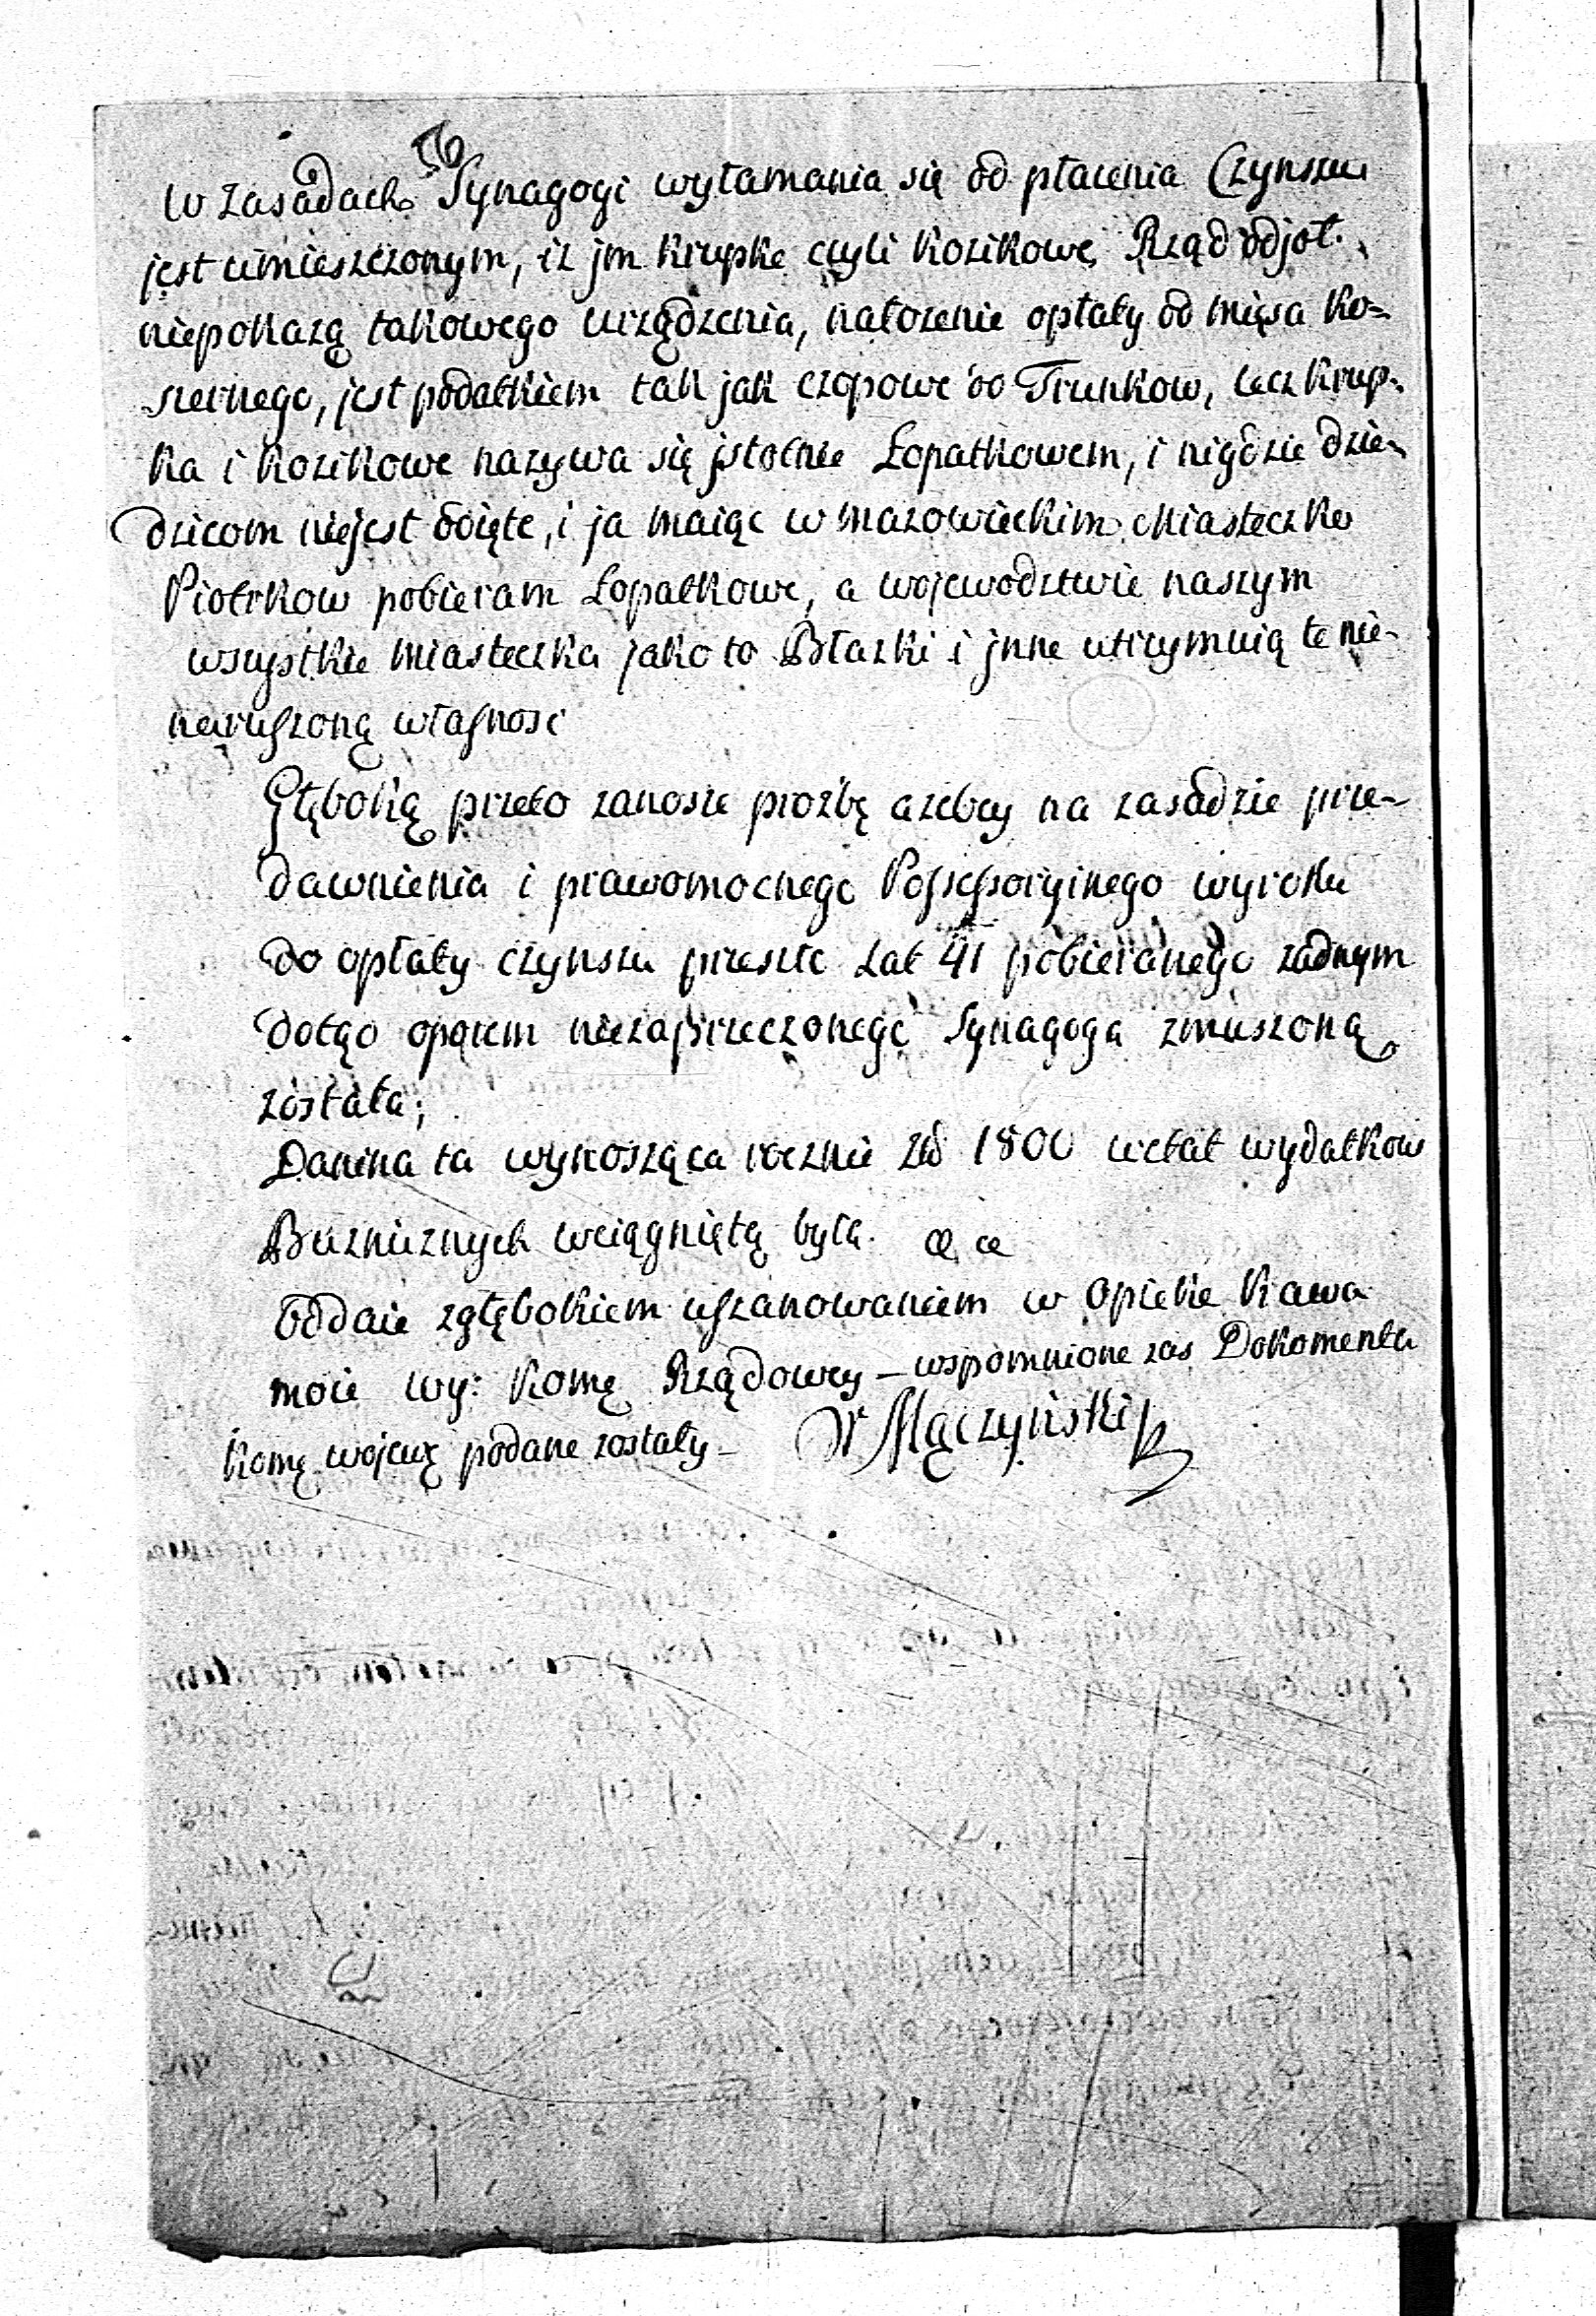 56
W zasadach Synagogi wyłamania się od płacenia Czynszu
jest umieszczonym, iz jm krupke czyli kozikowe Rząd odjoł.
niepokazą takowego urządzenia, nałozenie opłaty od mięsa ko-
szernego, jest podatkiem tak jak czopowe od Trunkow, lecz krup-
ka i kozikowe nazywa się jstotnie Łopatkowem, i nigdzie dzie-
dzicom niejest odięte, i ja maiąc w mazowieckim Miasteczko
Piotrkow pobieram Łopatkowe, a wojewodztwie naszym
wszystkie miasteczka jako to Błazki i jnne utrzymuią te nie-
naruszoną własnosc
Głęboką przeto zanosze prozbę azeby na zasadzie prze-
dawnienia i prawomocnego Possessoryinego wyroku
do opłaty czynszu przeszło Lat 41 pobieranego zadnym
dotąd oporem niezaprzeczonego Synagoga zmuszoną
została;
Danina ta wynosząca rocznie Zł 1800 w etat wydatkow
Buzniznych wciągniętą była.
Oddaie zgłębokiem uszanowaniem w Opieke kawa
moie wy: komę Rządowey – wspomnione zas Dokomenta
komę wojewę podane zostały –
W Mączyński